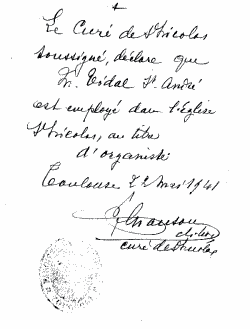 Le Curé de St Nicolas
soussigné, déclare que
Mr. Vidal St André
est employé dans l'Eglise
St Nicolas, au titre
d'organiste
Toulouse 22 Mai 1941
curé de St Nicolas